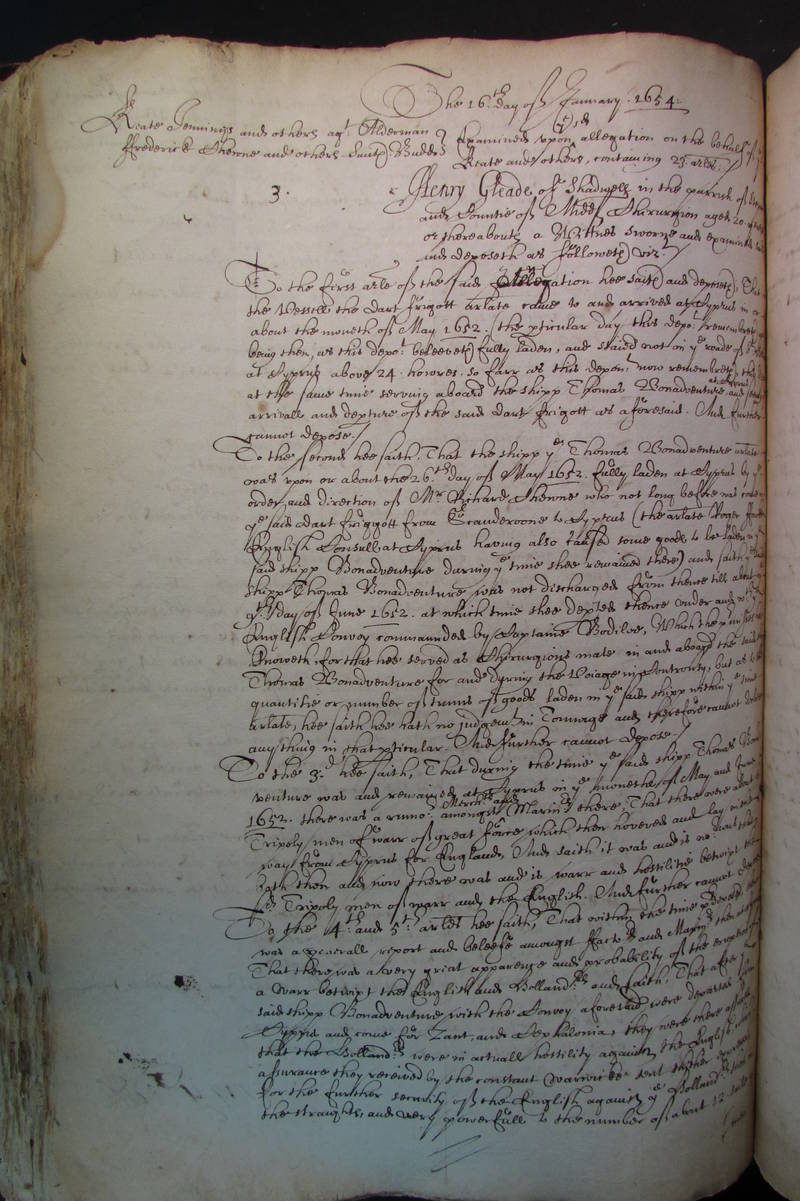 The 16th. day of January. 1654.
Keate Jennings and others agt. Alderman
ffrederick Thenne and others.
Examined upon allegation on the behalf
Keate and others, containing 23 arles.
3.
Henry Gleade of Shadwell in the parrish of
and Countie of Midd Chirurgion aged 20
or thereabouts a Wittnes sworne and examined
and deposeth as followeth vizt.
To the first arle of the said Allegation hee saith and deposeth, That
the Vessell the Dart frigott arlate came to and arrived at Cyprus in
about the moneth of May 1652. (the pticular day this depot. remembreth
being then, as this depot. beleeveth fully laden, and staied not in ye roade of
at Cyprus above 24. howres. so farr as this depont. now remembreth,
at the same time serving aboard the shipp Thomas Bonadventure
arrivall and depture of the said Dart frigott as aforesaid. And further
cannot depose./
To the second hee saith, That the shipp ye Thomas Bonadventure arlate
was upon or about the 26.th day of May 1652. fully laden at Cyprus by ye
order, and direction of Mr. Richard Thenne who not long before was come
ye said Dart friggott from Scanderoone to Cyprus (the arlate Roger
English Consull at Cyprus having also caused some goods to be laden
said shipp Bonadventure during ye time shee remained there) and saith
shipp Thomas Bonadventure was not discharged from thence till about
9th. day of June 1652. at which time shee depted thence under and with
English Convoy commaunded by Captaine Bodiloe, Which hee
knoweth for that hee served as Chirurgions mate in and aboard the said
Thomas Bonadventure for and during the Voiage in Controversy, but as to
quantitie or number of tunns of goods laden in ye said shipp within ye time
arlate, hee saith hee hath no judgemt. in Tonnage and therefore cannot depose
anything in that pticular. And further cannot depose./
To the 3.d hee saith, That during the time ye said shipp Thomas Bonad
venture was and remained at Cyprus in ye moneths of May and June
1652. there was a rumor amongst Merchts. and Marinrs there, That there were about
Tripoly men of warr of great force which then hovered and lay in the
way from Cyprus for England, And saith it was and is
both then and now there was and is warr and hostilitie betwixt the
sd. Tripoly men of warr and the English. And further cannot depose
To the 4th. and 5th. arles hee saith, That within the time
was a generall report and beleefe amongst ffactors and Marinrs
That there was a very great apparence and probability of the
a warr betwixt the English and Hollanders and saith, That after
said shipp Bonadventure with the Convoy aforesaid were departed from
Cyprus and come for Zant and Cephalonia, they were there
that the Hollanders were in actuall hostility against the English
assurance they received by the constant Warwick sent thither
for the further security of the English against ye Hollanders
the straights and very powerfull to the number of about 12